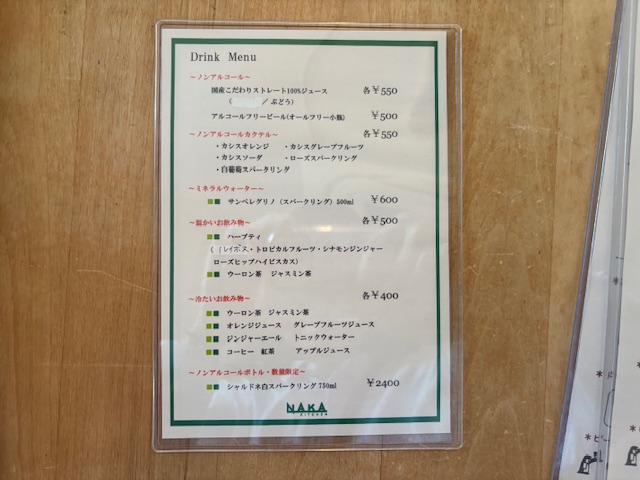 Drink Menu
～ノンアルコール～
国産こだわりストレート100%ジュース 各￥550
（ ／ぶどう）
アルコールフリービール(オールフリー小瓶) ￥500
～ノンアルコールカクテル～ 各￥550
・カシスオレンジ ・カシスグレープフルーツ
・カシスソーダ ・ローズスパークリング
・白葡萄スパークリング
～ミネラルウォーター～
サンペレグリノ（スパークリング）500ml ￥600
～温かいお飲み物～ 各￥500
ハーブティ
レイボス・トロピカルフルーツ・シナモンジンジャー
ローズヒップハイビスカス）
ウーロン茶 ジャスミン茶
～冷たいお飲み物～ 各￥400
ウーロン茶 ジャスミン茶
オレンジジュース グレープフルーツジュース
ジンジャーエール トニックウォーター
コーヒー 紅茶 アップルジュース
～ノンアルコールボトル・数量限定～
シャルドネ白スパークリング 750ml ￥2400
NAKA
KITCHEN